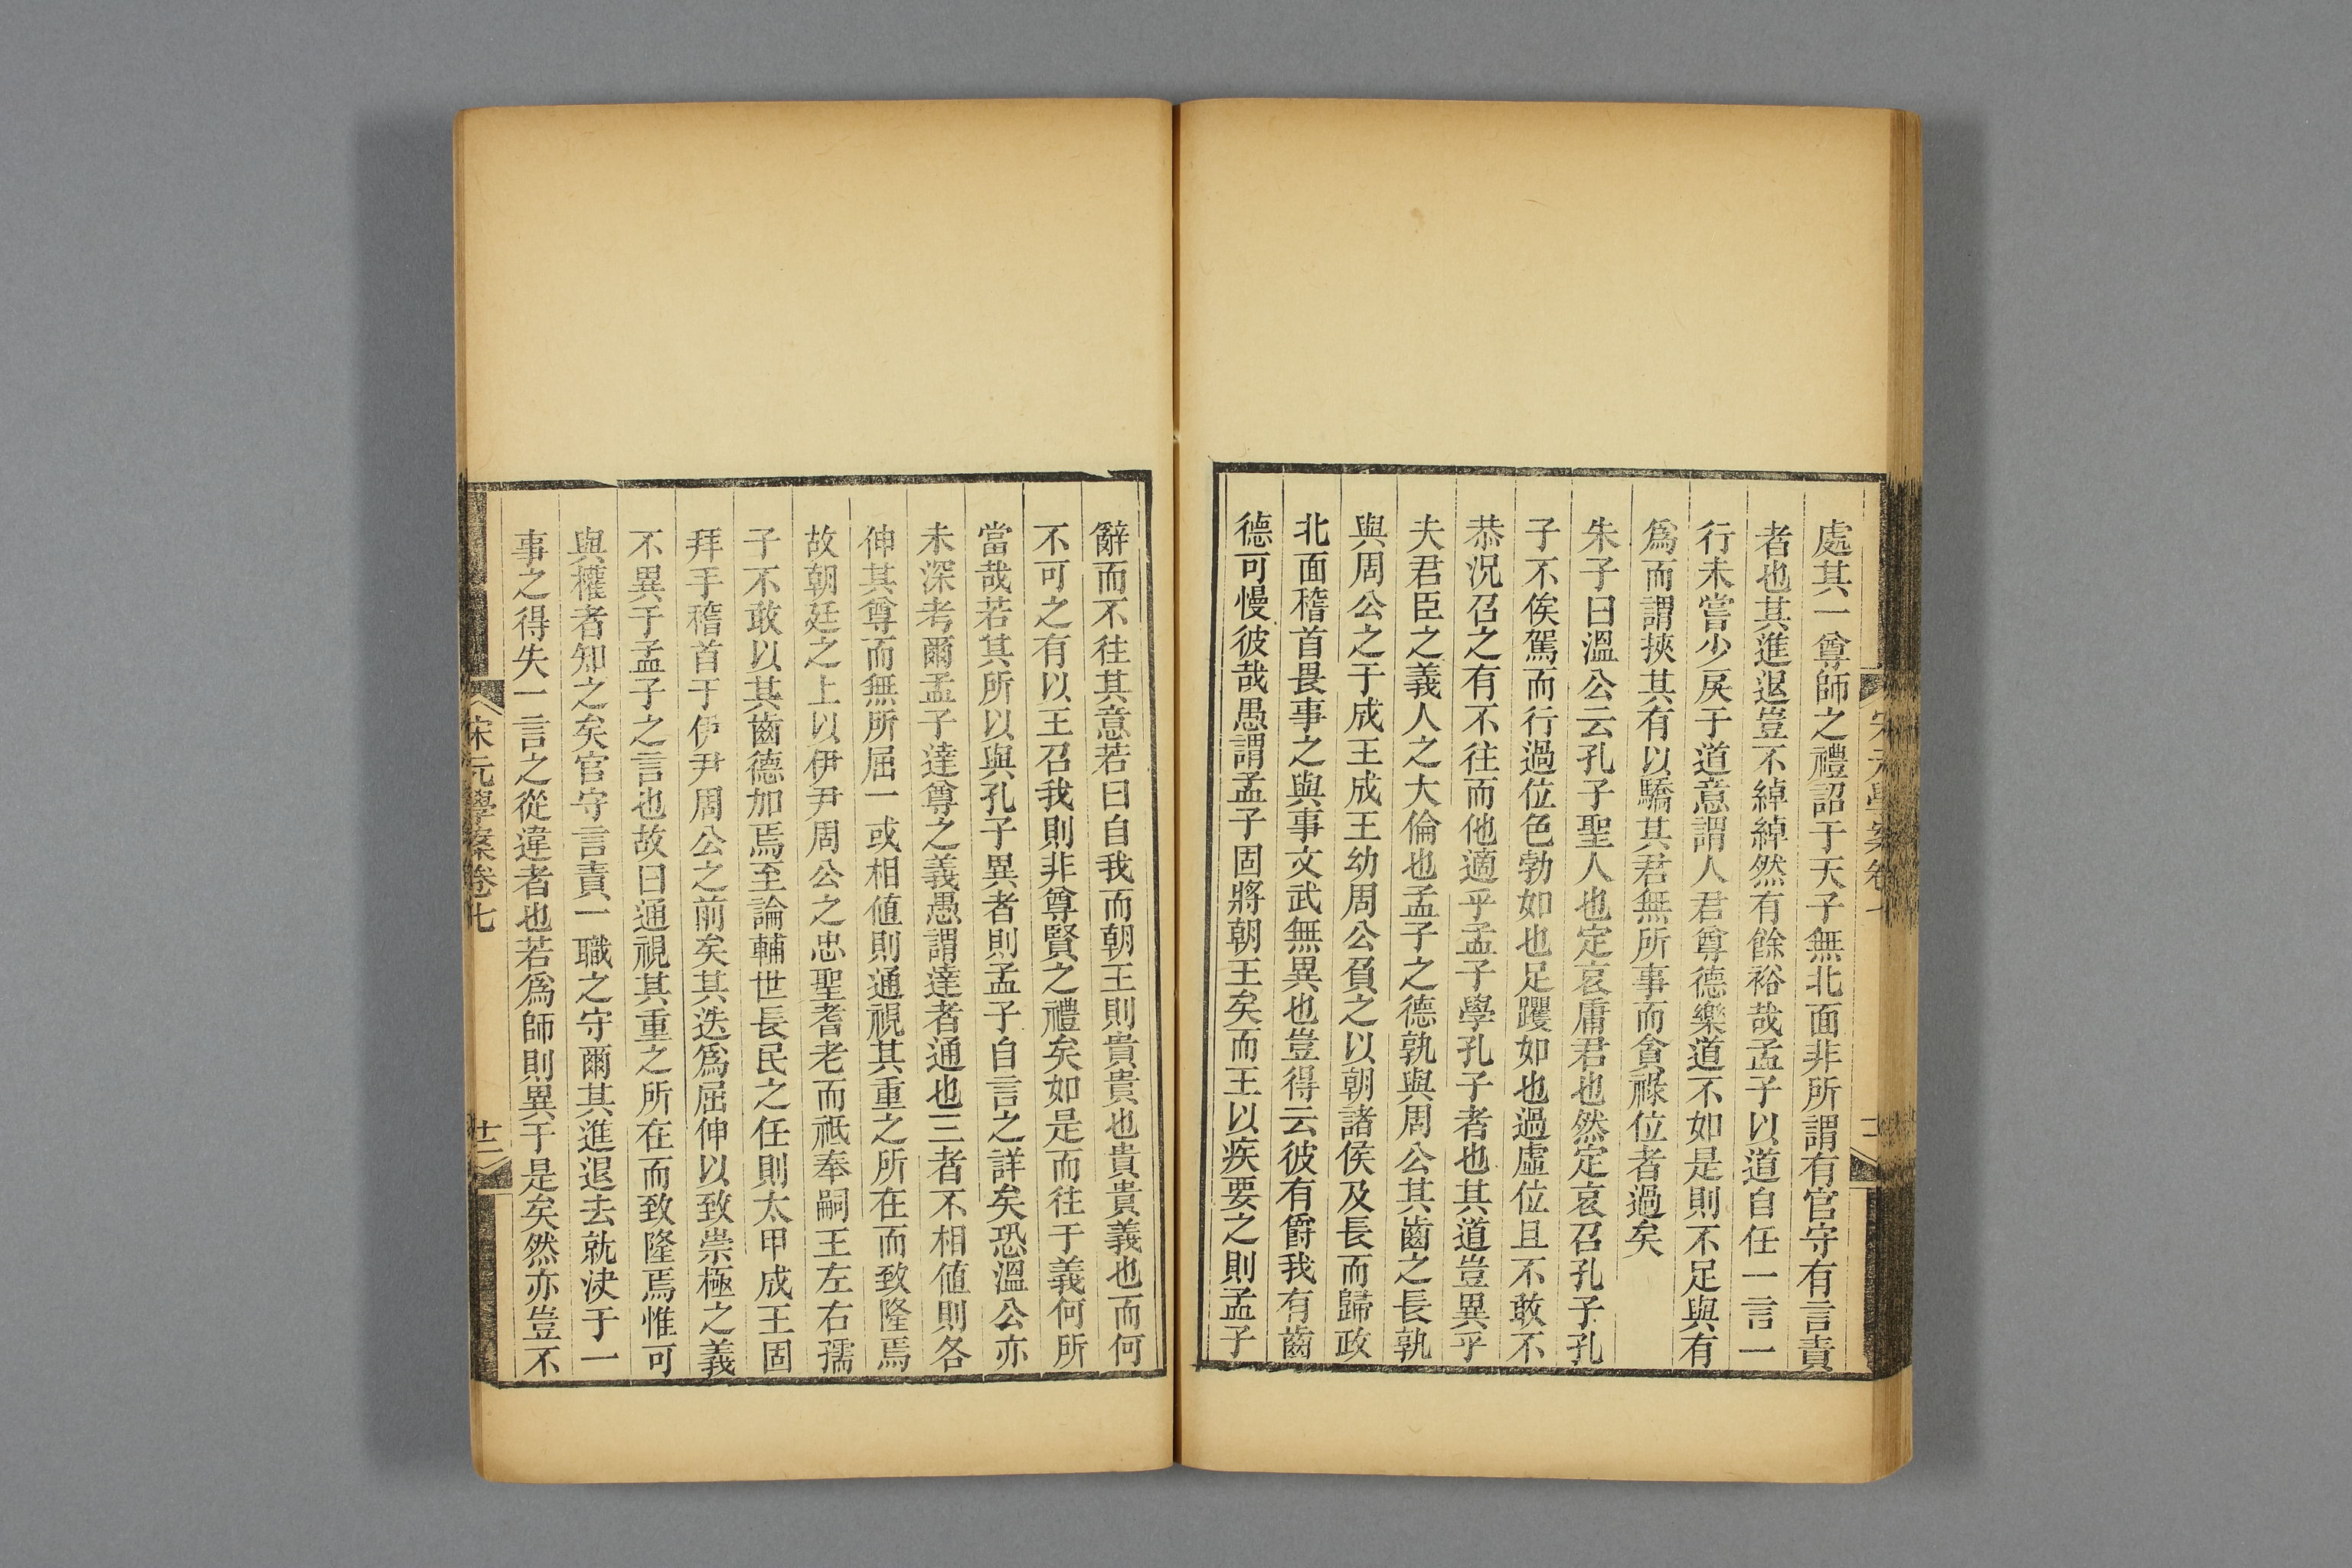 處其一尊師之禮詔于天子無北面非所謂有官守有言責
者也其進退豈不綽綽然有餘裕哉孟子以道自任一言一
行未嘗少戾于道意謂人君尊德樂道不如是則不足與有
爲而謂挾其有以驕其君無所事而貪祿位者過矣
朱子曰溫公云孔子聖人也定哀庸君也然定哀召孔子孔
子不俟駕而行過位色勃如也足躩如也過虛位且不敢不
恭況召之有不往而他適乎孟子學孔子者也其道豈異乎
夫君臣之義人之大倫也孟子之德孰與周公其齒之長孰
與周公之于成王成王幼周公負之以朝諸侯及長而歸政
北面稽首畏事之與事文武無異也豈得云彼有爵我有齒
德可慢彼哉愚謂孟子固將朝王矣而王以疾要之則孟子
辭而不往其意若曰自我而朝王則貴貴也貴貴義也而何
不可之有以王召我則非尊賢之禮矣如是而往于義何所
當哉若其所以與孔子異者則孟子自言之詳矣恐溫公亦
未深考爾孟子達尊之義愚謂達者通也三者不相値則各
伸其尊而無所屈一或相値則通視其重之所在而致隆焉
故朝廷之上以伊尹周公之忠聖耆老而祗奉嗣王左右孺
子不敢以其齒德加焉至論輔世長民之任則太甲成王固
拜手稽首于伊尹周公之前矣其迭爲屈伸以致崇極之義
不異于孟子之言也故曰通視其重之所在而致隆焉惟可
與權者知之矣官守言責一職之守爾其進退去就決于一
事之得失一言之從違者也若爲師則異于是矣然亦豈不
宋元學案卷七
十二